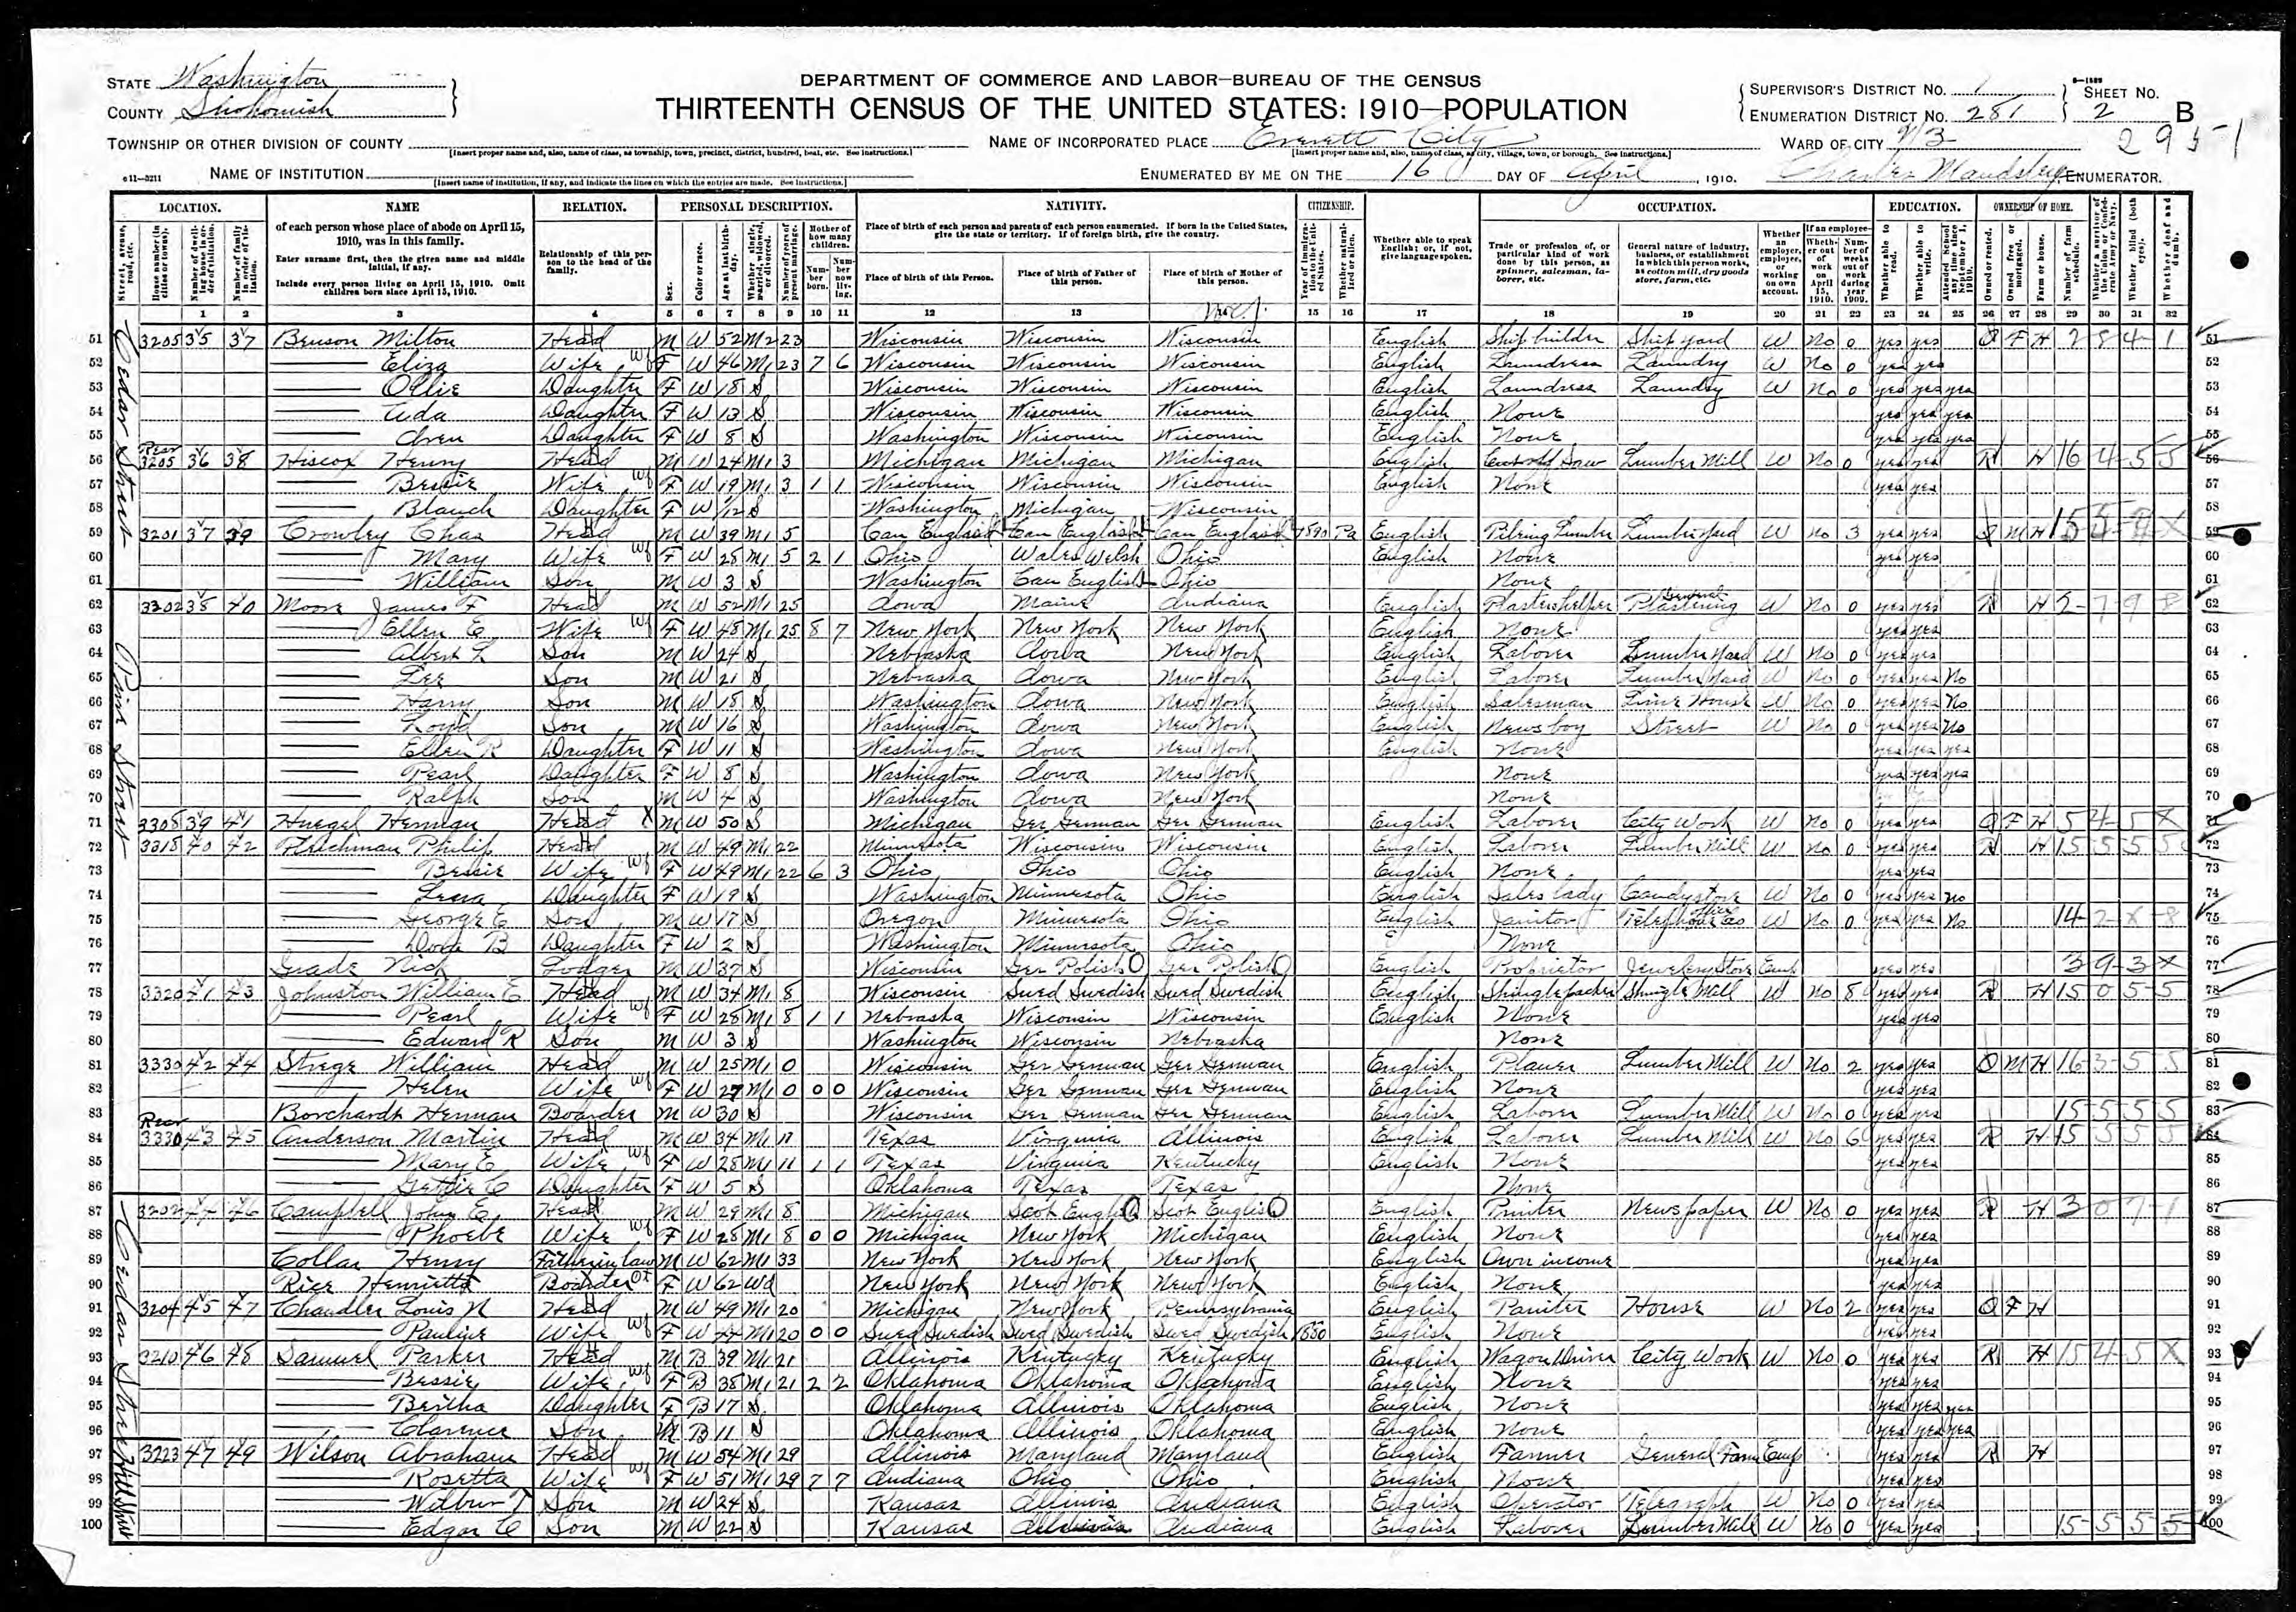 DEPARTMENT OF COMMERCE AND LABOR—BUREAU OF THE CENSUS
THIRTEENTH CENSUS OF THE UNITED STATES: 1910—POPULATION
STATE Washington
COUNTY Snohomish
TOWNSHIP OR OTHER DIVISION OF COUNTY
[Insert proper name and, also, name of class, as township, town, precinct, district, hundred, beat, etc. See instructions.]
NAME OF INSTITUTION
[Insert name of institution, if any, and indicate the lines on which the entries are made. See instructions.]
NAME OF INCORPORATED PLACE Everett City
[Insert proper name and, also, name of class, as city, village, town, or borough. See instructions.]
ENUMERATED BY ME ON THE 16 DAY OF April, 1910.
SUPERVISOR'S DISTRICT No. 1
ENUMERATION DISTRICT No. 281
SHEET No. 2 B
WARD OF CITY
2951
Charles Maudsley, ENUMERATOR.
LOCATION. NAME RELATION. PERSONAL DESCRIPTION. NATIVITY. CITIZENSHIP. OCCUPATION. EDUCATION. OWNERSHIP OF HOME.
of each person whose place of abode on April 15, 1910, was in this family.
Enter surname first, then the given name and middle initial, if any.
Include every person living on April 15, 1910. Omit children born since April 15, 1910.
Relationship of this person to the head of the family.
Place of birth of each person and parents of each person enumerated. If born in the United States, give the state or territory. If of foreign birth, give the country.
Place of birth of this Person. Place of birth of Father of this person. Place of birth of Mother of this person.
Whether able to speak English; or, if not, give language spoken.
Trade or profession of, or particular kind of work done by this person, as spinner, salesman, laborer, etc.
General nature of industry, business, or establishment in which this person works, as cotton mill, dry goods store, farm, etc.
Cedar Street
51 3205 35 37 Benson Milton Head M W 52 M2 23 Wisconsin Wisconsin Wisconsin English Ship builder Ship yard W No 0 yes yes O F H 2 8 4 1
52 Eliza Wife F W 46 M1 23 7 6 Wisconsin Wisconsin Wisconsin English Laundress Laundry W No 0 yes yes
53 Ollie Daughter F W 18 S Wisconsin Wisconsin Wisconsin English Laundress Laundry W No 0 yes yes yes
54 Ada Daughter F W 13 S Wisconsin Wisconsin Wisconsin English None yes yes yes
55 Daughter F W 8 S Washington Wisconsin Wisconsin English None yes yes yes
56 Rear 3205 36 38 Hiscox Henry Head M W 24 M1 3 Michigan Michigan Michigan English Saw Lumber Mill W No 0 yes yes R H 16 4 5 5
57 Bessie Wife F W 19 M1 3 1 1 Wisconsin Wisconsin Wisconsin English None yes yes
58 Blanch Daughter F W S Washington Michigan Wisconsin
59 3201 37 39 Crowley Chas Head M W 39 M1 5 Can English Can English Can English 1890 Pa English Piling Lumber Lumber Yard W no 3 yes yes O M H
60 Mary Wife F W 28 M1 5 2 1 Ohio Wales Welsh Ohio English None yes yes
61 William Son M W 3 S Washington Can English Ohio None
Pine Street
62 3302 38 40 Moore James F Head M W 52 M1 25 Iowa Maine Indiana English Plasters helper General Plastering W No 0 yes yes R H 2 7 9 8
63 Ellen E Wife F W 48 M1 25 8 7 New York New York New York English None yes yes
64 Albert L Son M W 24 S Nebraska Iowa New York English Laborer Lumber Yard W No 0 yes yes
65 Lee Son M W 21 S Nebraska Iowa New York English Laborer Lumber Yard W No 0 yes yes No
66 Harry Son M W 18 S Washington Iowa New York English Salesman House W No 0 yes yes No
67 Loyd Son M W 16 S Washington Iowa New York English News boy Street W No 0 yes yes No
68 Ellen R Daughter F W 11 S Washington Iowa New York English None yes yes yes
69 Pearl Daughter F W 8 S Washington Iowa New York None yes yes yes
70 Ralph Son M W 4 S Washington Iowa New York None
71 3308 39 41 Huegel Herman Head M W 50 S Michigan Ger German Ger German English Laborer City Work W No 0 yes yes O F H 5 4 5 X
72 3318 40 42 Philip Head M W 49 M1 22 Minnesota Wisconsin Wisconsin English Laborer Lumber Mill W no 0 yes yes R H 15 5 5 5
73 Bessie Wife F W 49 M1 22 6 3 Ohio Ohio Ohio English None yes yes
74 Lena Daughter F W 19 S Washington Minnesota Ohio English Sales lady Candy store W No 0 yes yes no
75 George E Son M W 17 S Oregon Minnesota Ohio English Janitor Telephone Co office W No 0 yes yes No 14 2 X 8
76 Dora B Daughter F W 2 S Washington Minnesota Ohio None
77 Grade Nick Lodger M W 37 S Wisconsin Ger Polish Ger Polish English Proprietor Jewelery Store Emp yes yes 3 9 3 X
78 3320 41 43 Johnston William E Head M W 34 M1 8 Wisconsin Swed Swedish Swed Swedish English Shingle packer Shingle Mill W no 8 yes yes R H 15 0 5 5
79 Pearl Wife F W 28 M1 8 1 1 Nebraska Wisconsin Wisconsin English None yes yes
80 Edward R Son M W 3 S Washington Wisconsin Nebraska None
81 3330 42 44 Strege William Head M W 25 M1 0 Wisconsin Ger German Ger German English Planer Lumber Mill W No 2 yes yes O M H 16 3 5 5
82 Helen Wife F W 27 M1 0 0 0 Wisconsin Ger German Ger German English None yes yes
83 Borchardt Herman Boarder M W 30 S Wisconsin Ger German Ger German English Laborer Lumber Mill W No 0 yes yes 15 5 5 5
84 Rear 3330 43 45 Anderson Martin Head M W 34 M1 11 Texas Virginia Illinois English Laborer Lumber Mill W No 6 yes yes R H 15 5 5 5
85 Mary E Wife F W 28 M1 11 1 1 Texas Virginia Kentucky English None yes yes
86 Gettie C Daughter F W 5 S Oklahoma Texas Texas None
Cedar Street
87 3202 44 46 Campbell John E Head M W 29 M1 8 Michigan Scot English Scot English English Printer Newspaper W No 0 yes yes R H 3 0 7 1
88 Phoebe Wife F W 28 M1 8 0 0 Michigan New York Michigan English None yes yes
89 Collar Henry Father in law M W 62 M1 33 New York New York New York English Own income yes yes
90 Rice Henrietta Boarder F W 62 Wd New York New York New York English None yes yes
91 3204 45 47 Chandler Louis N Head M W 49 M1 20 Michigan New York Pennsylvania English Painter House W No 2 yes yes O F H
92 Pauline Wife F W 44 M1 20 0 0 Swed Swedish Swed Swedish Swed Swedish 1880 English None yes yes
93 3210 46 48 Samuel Parker Head M B 39 M1 21 Illinois Kentucky Kentucky English Wagon Driver City Work W No 0 yes yes R H 15 4 5 X
94 Bessie Wife F B 38 M1 21 2 2 Oklahoma Oklahoma Oklahoma English None yes yes
95 Bertha Daughter F B 17 S Oklahoma Illinois Oklahoma English None yes yes yes
96 Clarence Son M B 11 S Oklahoma Illinois Oklahoma English None yes yes yes
Hill Street
97 3223 47 49 Wilson Abraham Head M W 54 M1 29 Illinois Maryland Maryland English Farmer General Farm Emp yes yes R H
98 Rosetta Wife F W 51 M1 29 7 7 Indiana Ohio Ohio English None yes yes
99 Wilbur T Son M W 24 S Kansas Illinois Indiana English Operator Telegraph W No 0 yes yes
100 Edgar C Son M W 22 S Kansas Illinois Indiana English Laborer Lumber Mill W No 0 yes yes 15 5 5 5